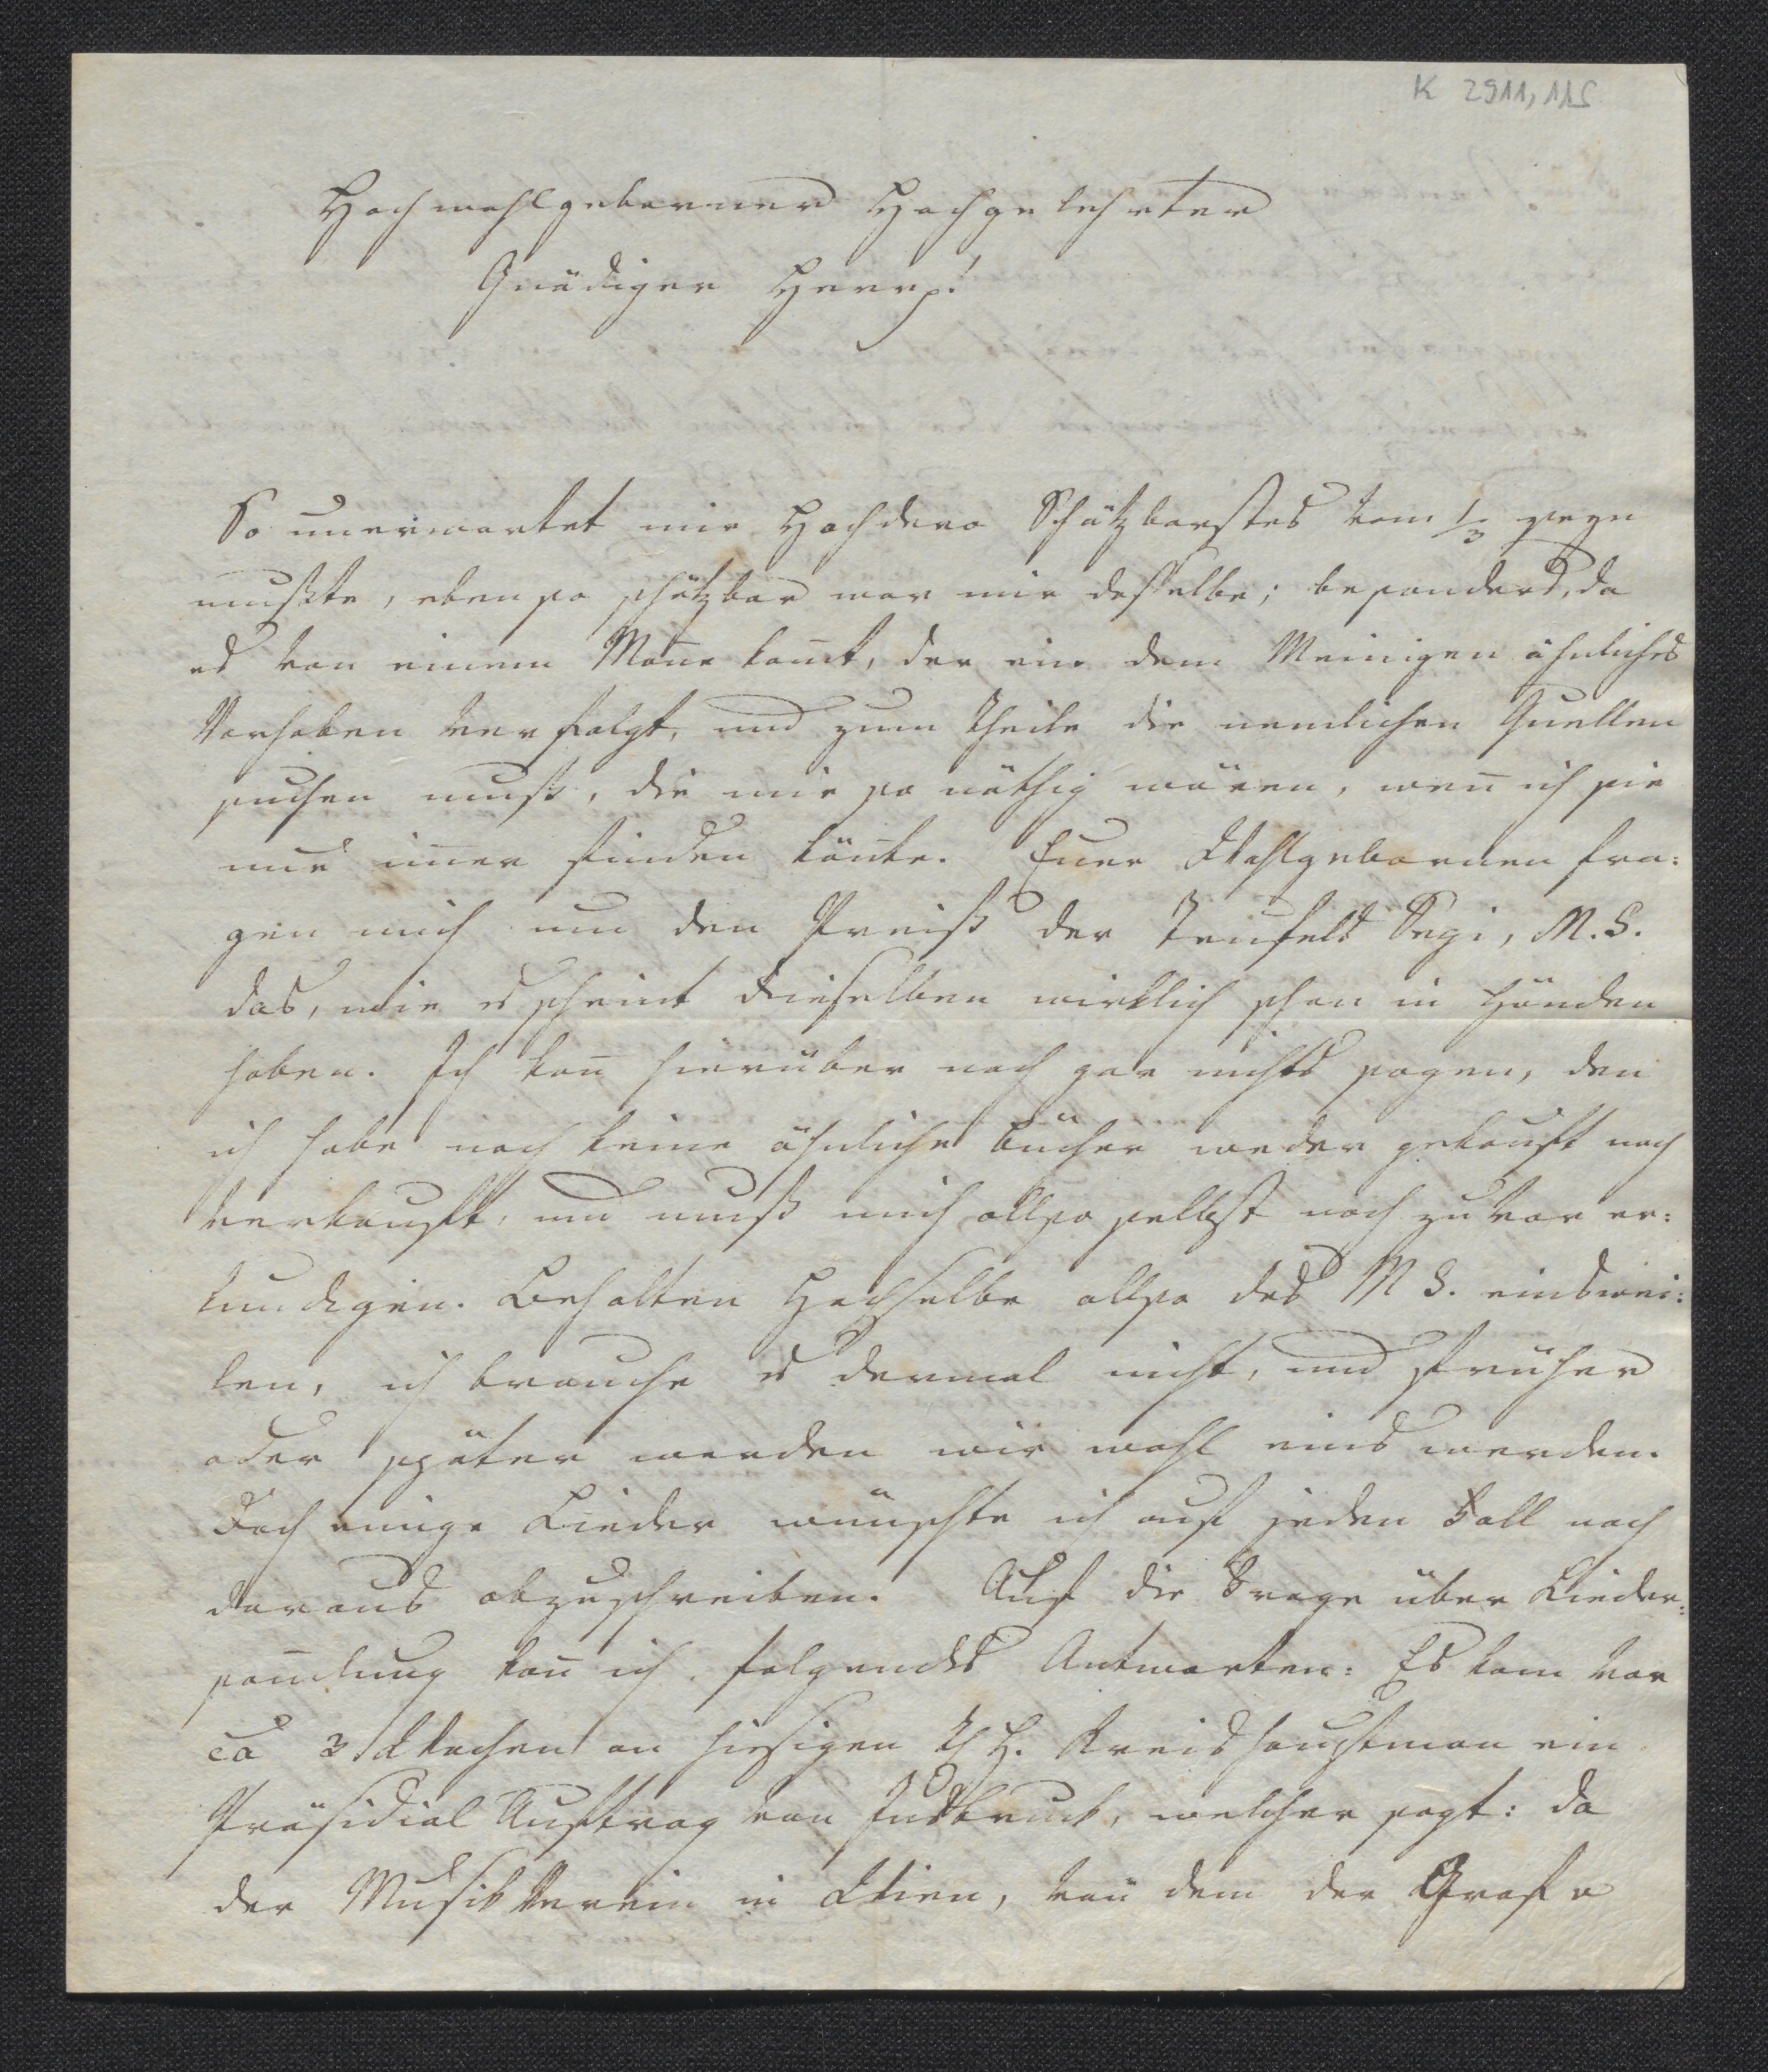 K 2911,115
Hochwohlgeborner Hochgelehrter
Gnädiger Herr p.!
So unerwartet mir Hochdero Schätzbarstes vom 1/3 seyn
mußte, eben so schätzbar war mir desselbe; besonders, da
es von einem Mañe kom̃t, der ein dem Meinigen ähnliches
Vorhaben verfolgt, und zum Theile die nemlichen Quellen
suchen muß, die mir so nöthig wären, weñ ich sie
nur im̃er finden köñte. Euer Wohlgebornen fra:
gen mich um den Preiß der Teufels Segi, M.S.
das, wie es scheint dieselben wirklich schon in Händen
haben. Ich kañ hierüber noch gar nichts sagen, den
ich habe noch keine ähnliche Bücher weder gekauft noch
verkauft, und muß mich allso selbst noch zuvor er:
kundigen. Behalten Hochselbe allso des M S. einswei:
len, ich brauche es dermal nicht, und früher
oder später werden wir wohl eins werden.
Doch einige Lieder wünschte ich auf jeden Fall noch
daraus abzuschreiben. Auf die Frage über Lieder:
sam̃lung kañ ich folgendes Antworten: Es kam vor
ca 3 Wochen an hiesigen H. Kreishauptman ein
Präsidial Auftrag von Insbruck, welcher sagt: da
der Musik Verein in Wien, von dem der Grafe